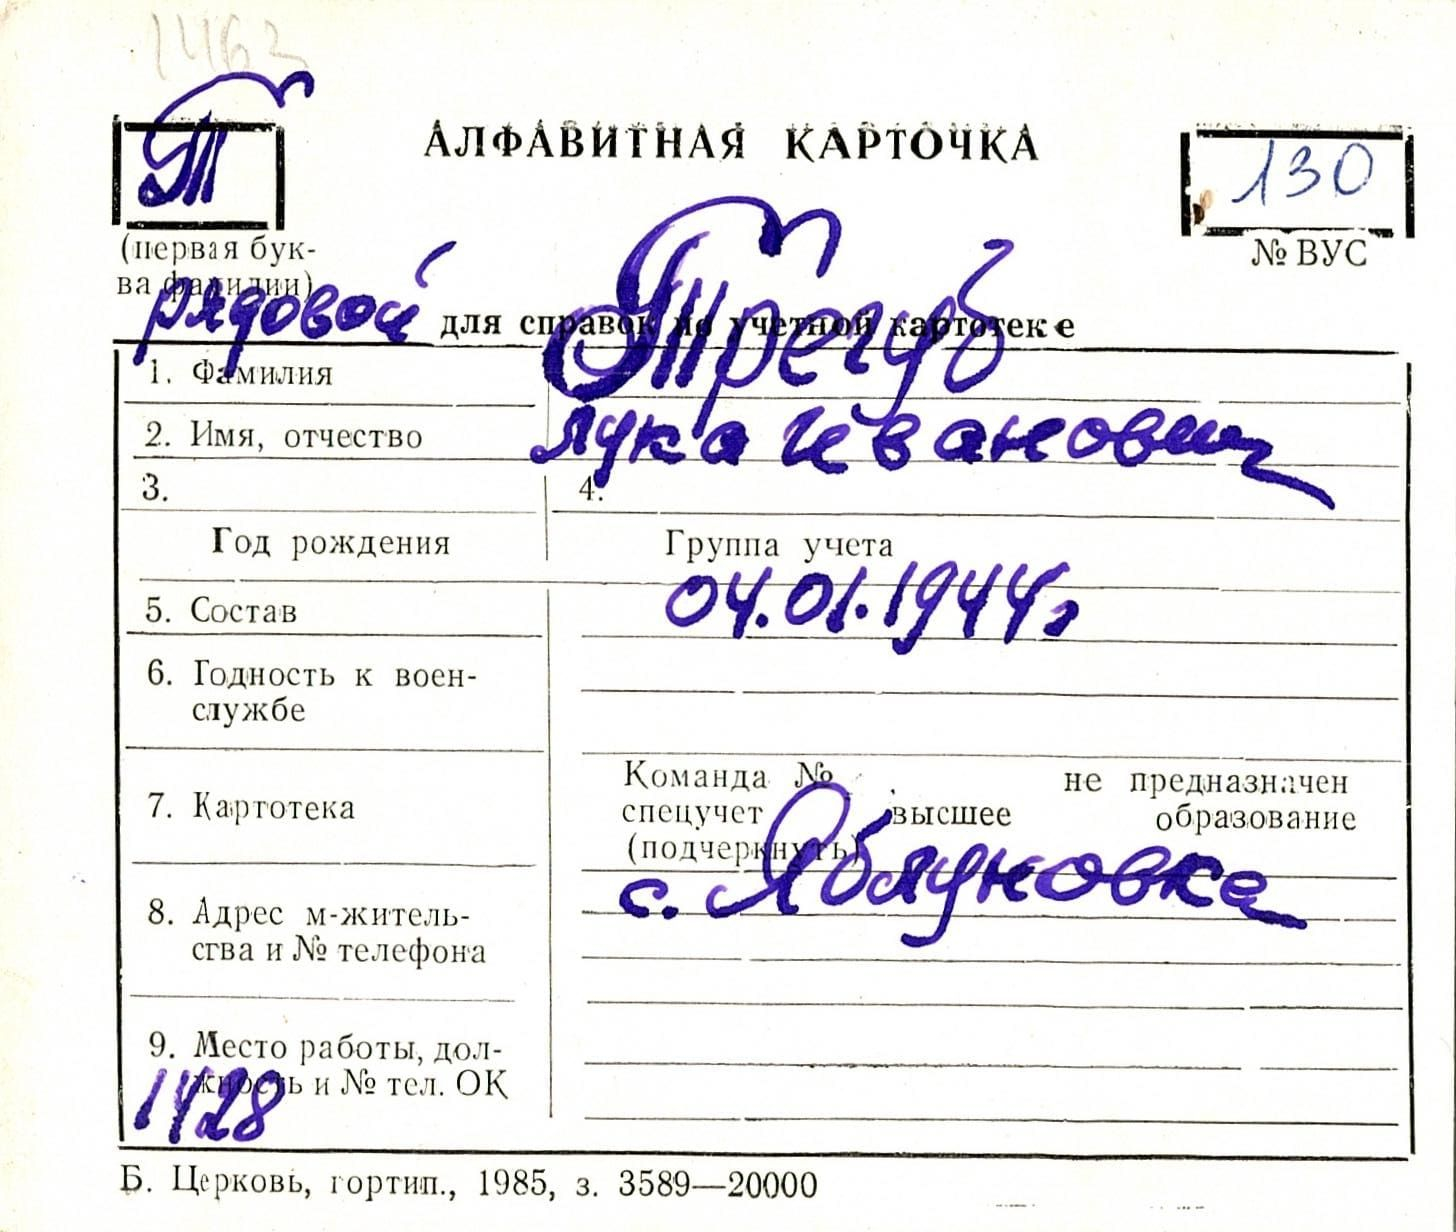 1463
Т
АЛФАВИТНАЯ КАРТОЧКА
130
(первая бук-
ва фамилии)
№ ВУС
рядовой для справок по учетной картотеке
1. Фамилия Трегуб
2. Имя, отчество Лука Иванович
3. 4.
Год рождения Группа учета
04.01.1944г
5. Состав
6. Годность к воен-
службе
7. Картотека
Команда № не предназначен
спецучет высшее образование
(подчеркнуть)
с. Яблуновка
8. Адрес м-житель-
ства и № телефона
9. Место работы, дол-
жность и № тел. ОК
1428
Б. Церковь, гортип., 1985, з. 3589—20000